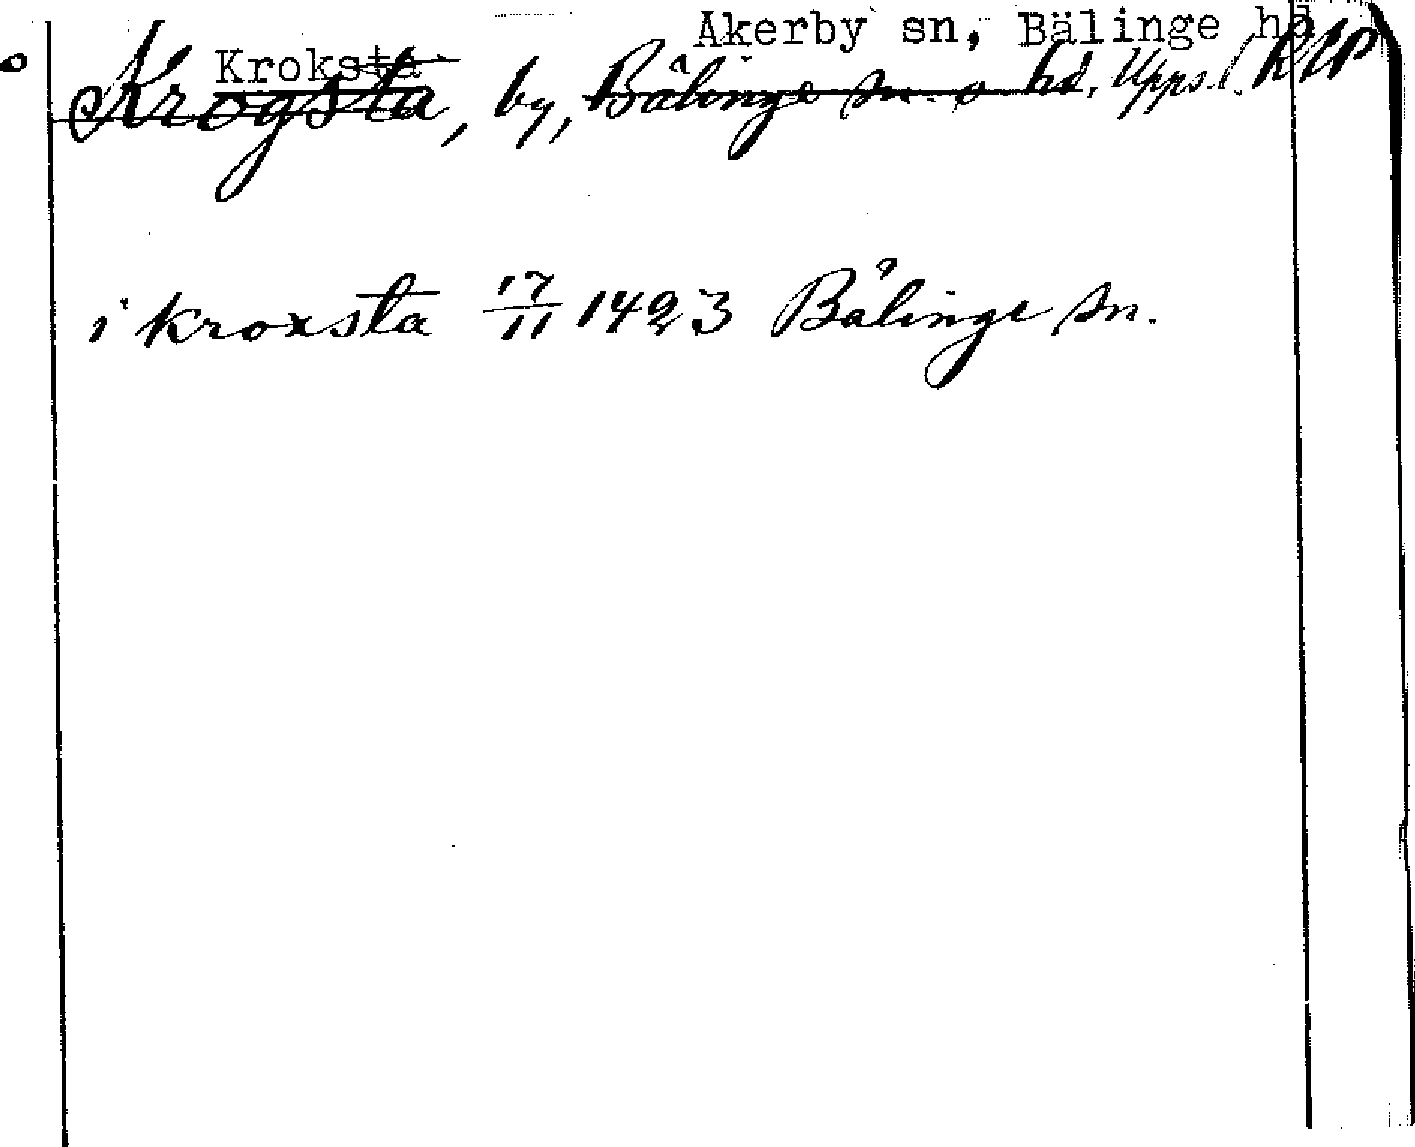 Åkerby sn, Bälinge hd
Kroksta
Krogsta, by, Bälinge sn. o. hd. Upps. l.
i kroxsta 17/11 1423 Bälinge sn.